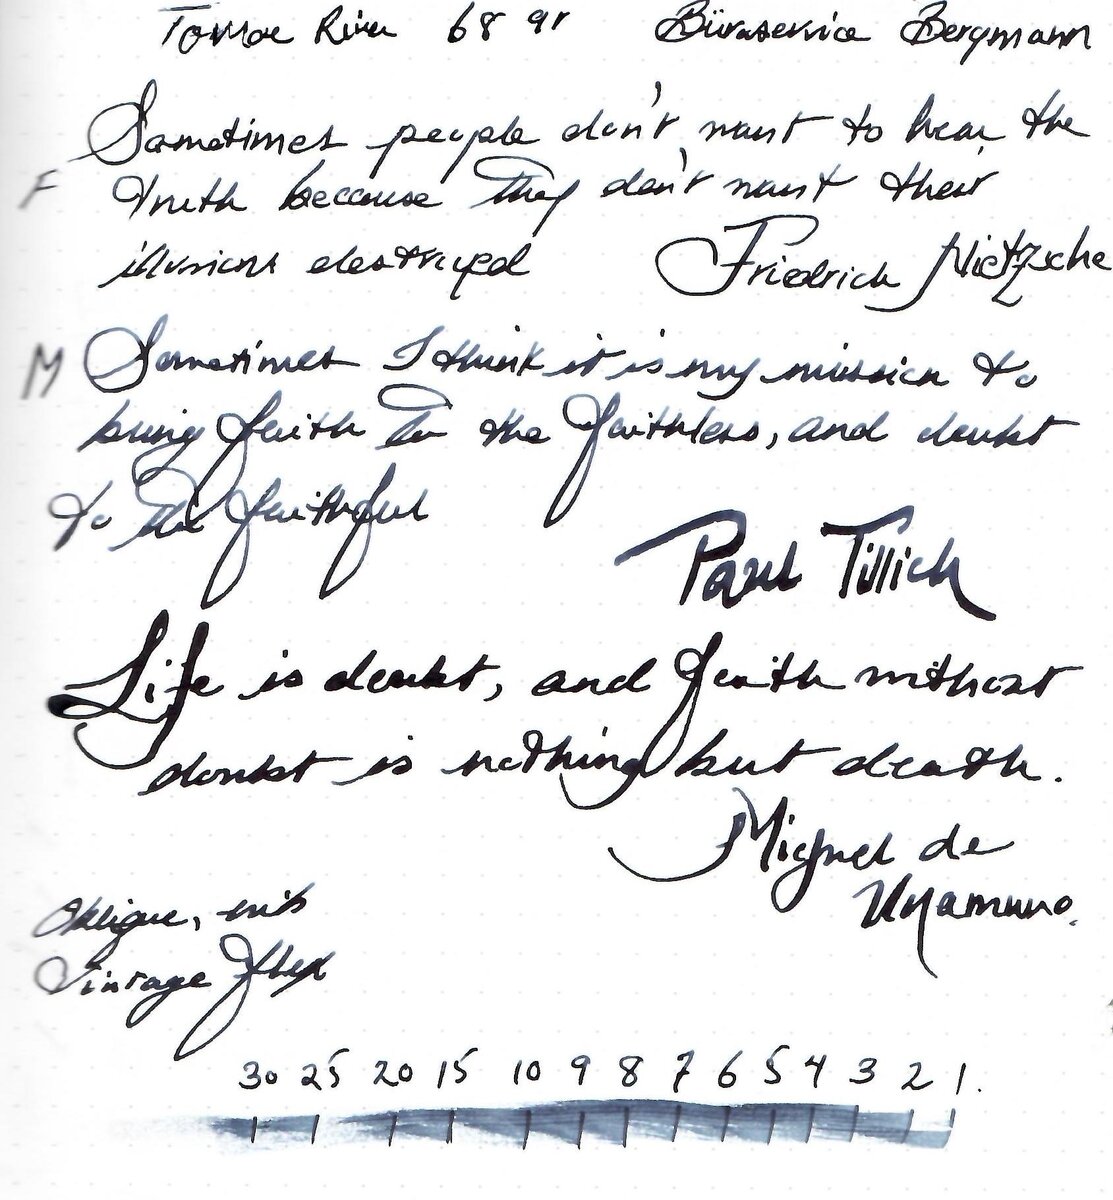 Tomoe River 68 gr Büroservice Bergmann
Sometimes people don't want to hear the
F truth because they don't want their
illusions destroyed Friedrich Nietzsche
M Sometimes I think it is my mission to
bring faith to the faithless, and doubt
to the faithful
Paul Tillich
Life is doubt, and faith without
doubt is nothing but death.
Miguel de
Unamuno.
Oblique,
Vintage flex
30 25 20 15 10 9 8 7 6 5 4 3 2 1.